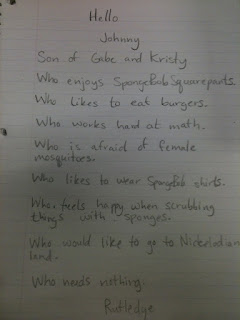 Hello
Johnny
Son of Gabe and Kristy
Who enjoys SpongeBobSquarepants.
Who likes to eat burgers.
Who works hard at math.
Who is afraid of female
mosquitoes.
Who likes to wear SpongeBob shirts.
Who feels happy when scrubbing
things with sponges.
Who would like to go to Nickelodian
land.
Who needs nothing.
Rutledge